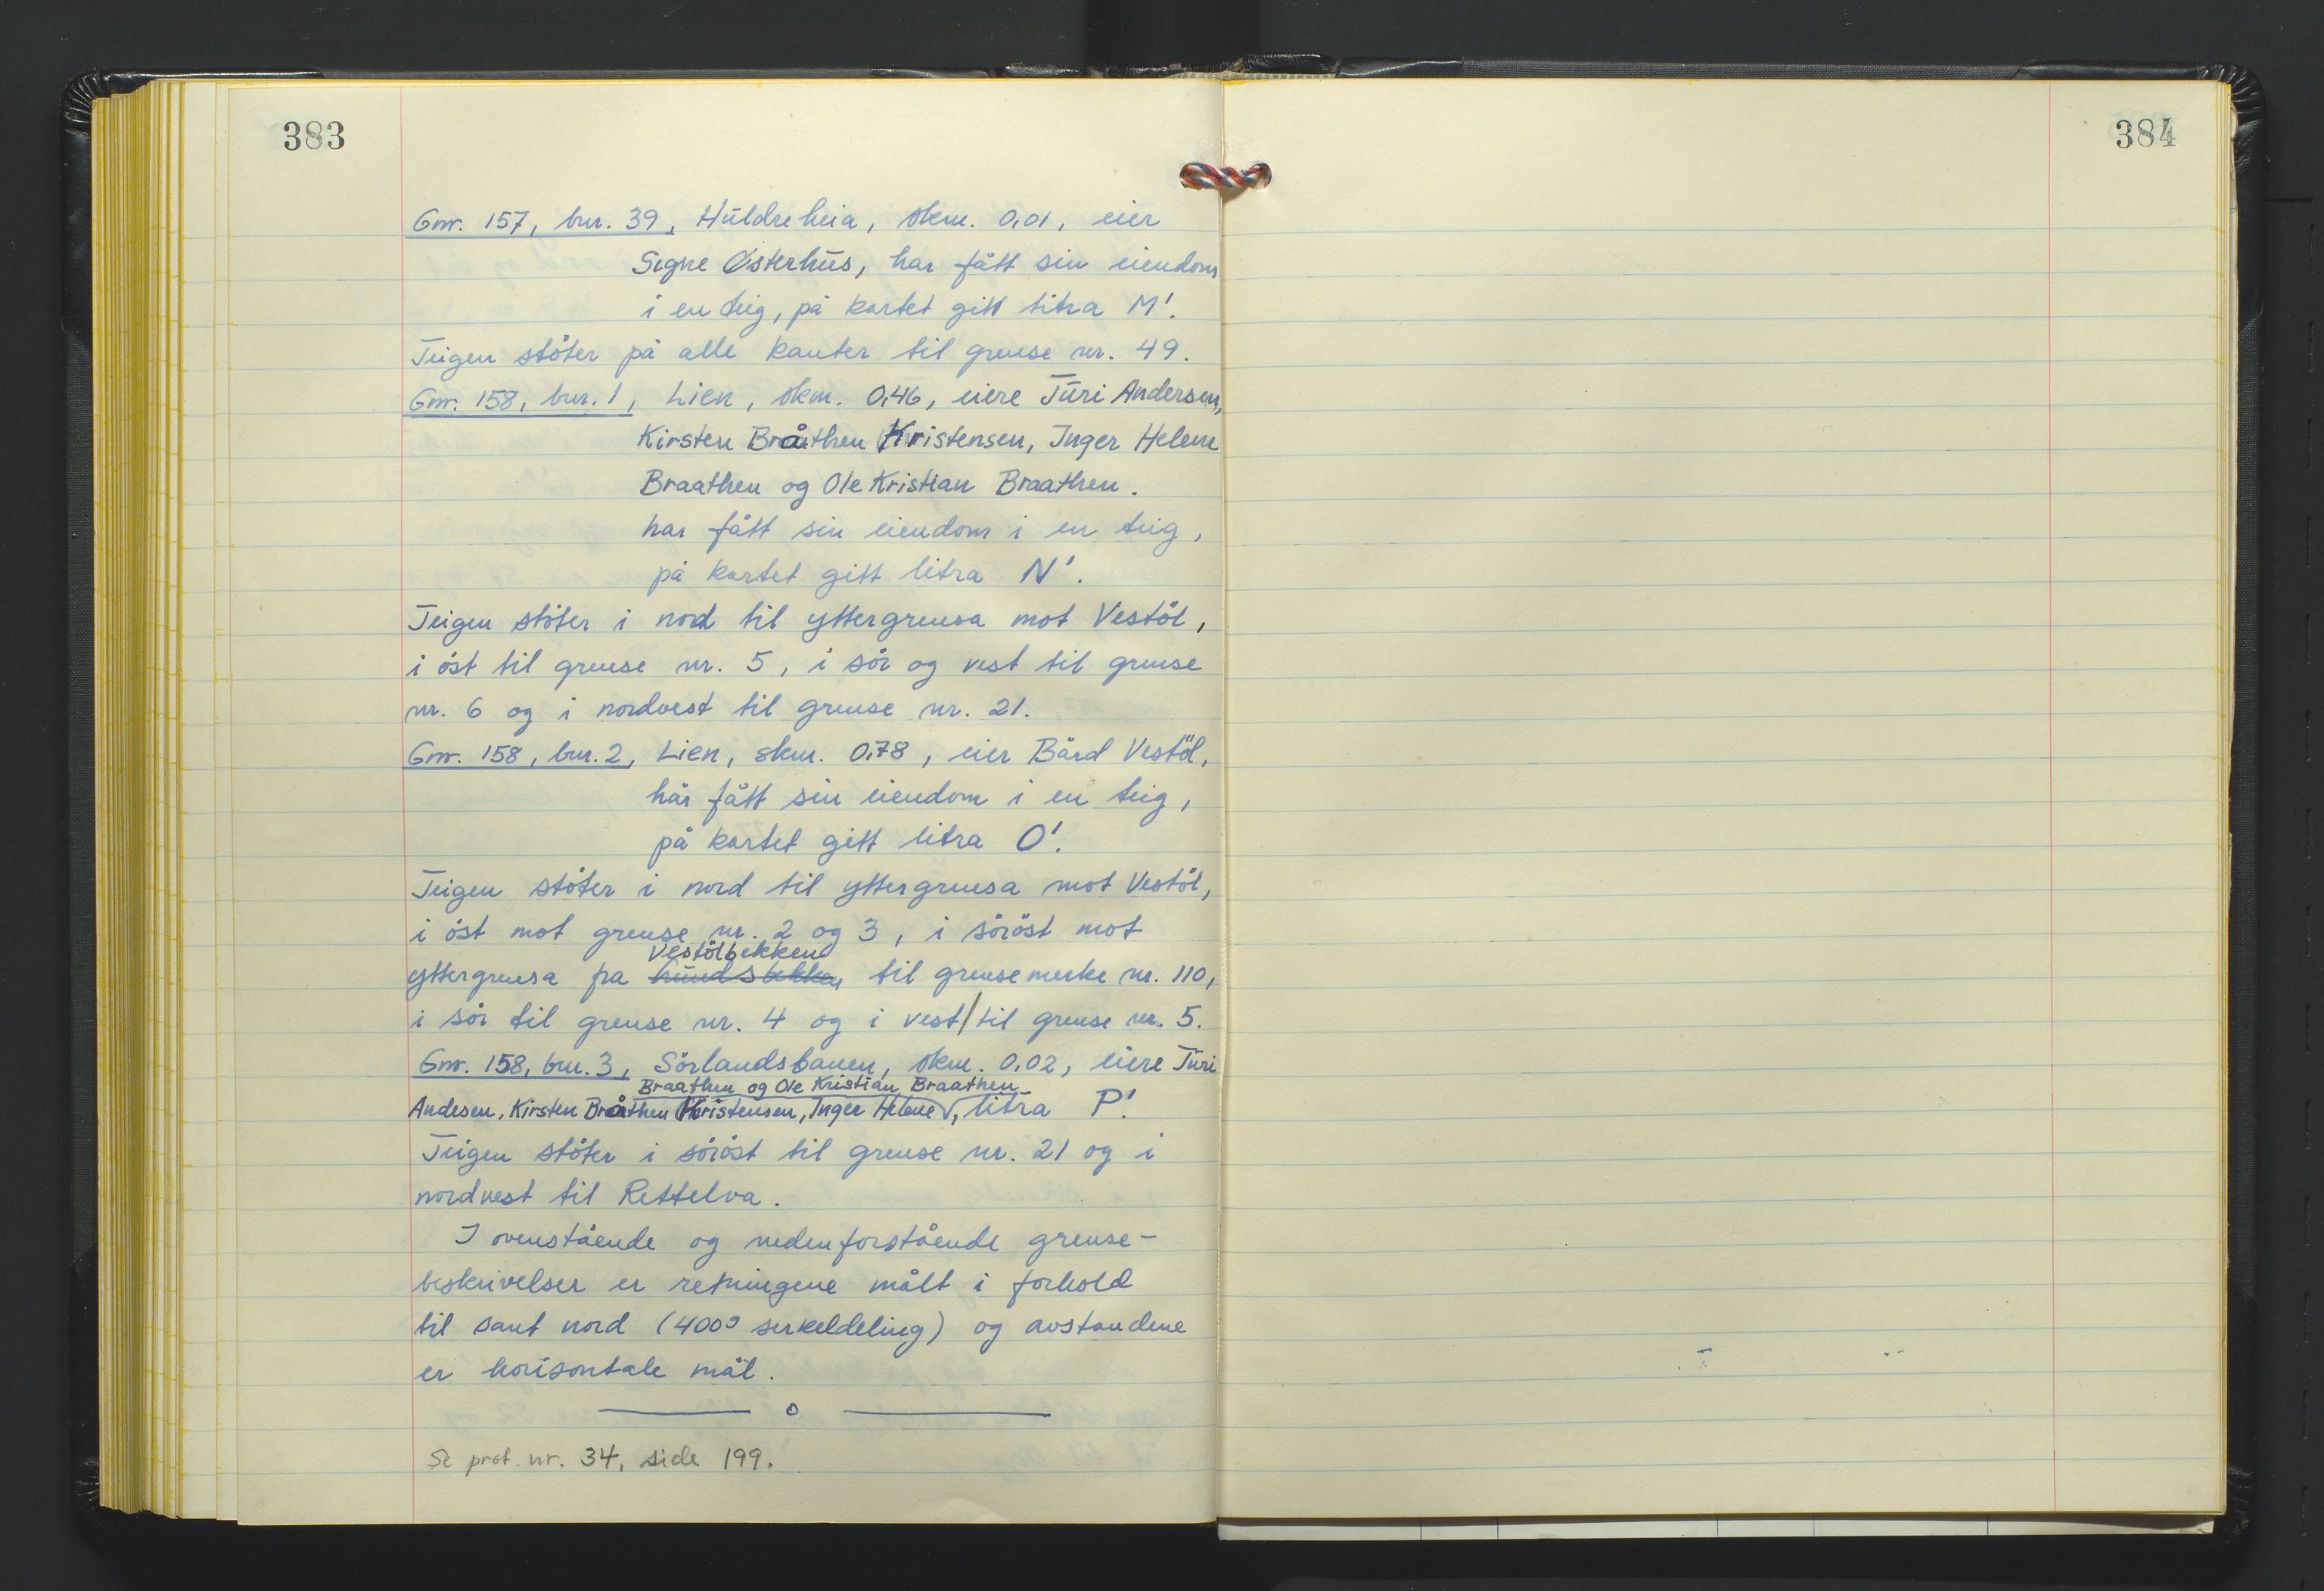 383
Gnr. 157, bnr. 39, Huldreheia, skm. 0,01, eier
Signe Østerhus, har fått sin eiendom
i en teig, på kartet gitt litra M'.
Teigen støter på alle kanter til grense nr. 49.
Gnr. 158, bnr. 1, Lien, skm. 0,46, eiere Turi Andersen,
Kirsten Bråthen Kristensen, Inger Helene
Braathen og Ole Kristian Braathen.
har fått sin eiendom i en teig,
på kartet gitt litra N'.
Teigen støter i nord til yttergrensa mot Vestøl,
i øst til grense nr. 5, i sør og vest til grense
nr. 6 og i nordvest til grense nr. 21.
Gnr. 158, bnr. 2, Lien, skm. 0,78, eier Bård Vestøl,
hår fått sin eiendom i en teig,
på kartet gitt litra O'.
Teigen støter i nord til yttergrensa mot Vestøl,
i øst mot grense nr. 2 og 3, i sørøst mot
Vestølbekken
yttergrensa fra til grensemerke nr. 110,
i sør til grense nr. 4 og i vest/til grense nr. 5.
Gnr. 158, bnr. 3, Sørlandsbanen, skm. 0,02, eiere Turi
Braathen og Ole Kristian Braathen
Andesen, Kirsten Bråthen Kristensen, Inger Helene √, litra P'.
Teigen støter i sørøst til grense nr. 21 og i
nordvest til Rettelva.
I ovenstående og nedenforstående grense-
beskrivelser er retningene målt i forhold
til sant nord (400g sirkeldeling) og avstandene
er horisontale mål.
o
Se prot. nr. 34, side 199.
384